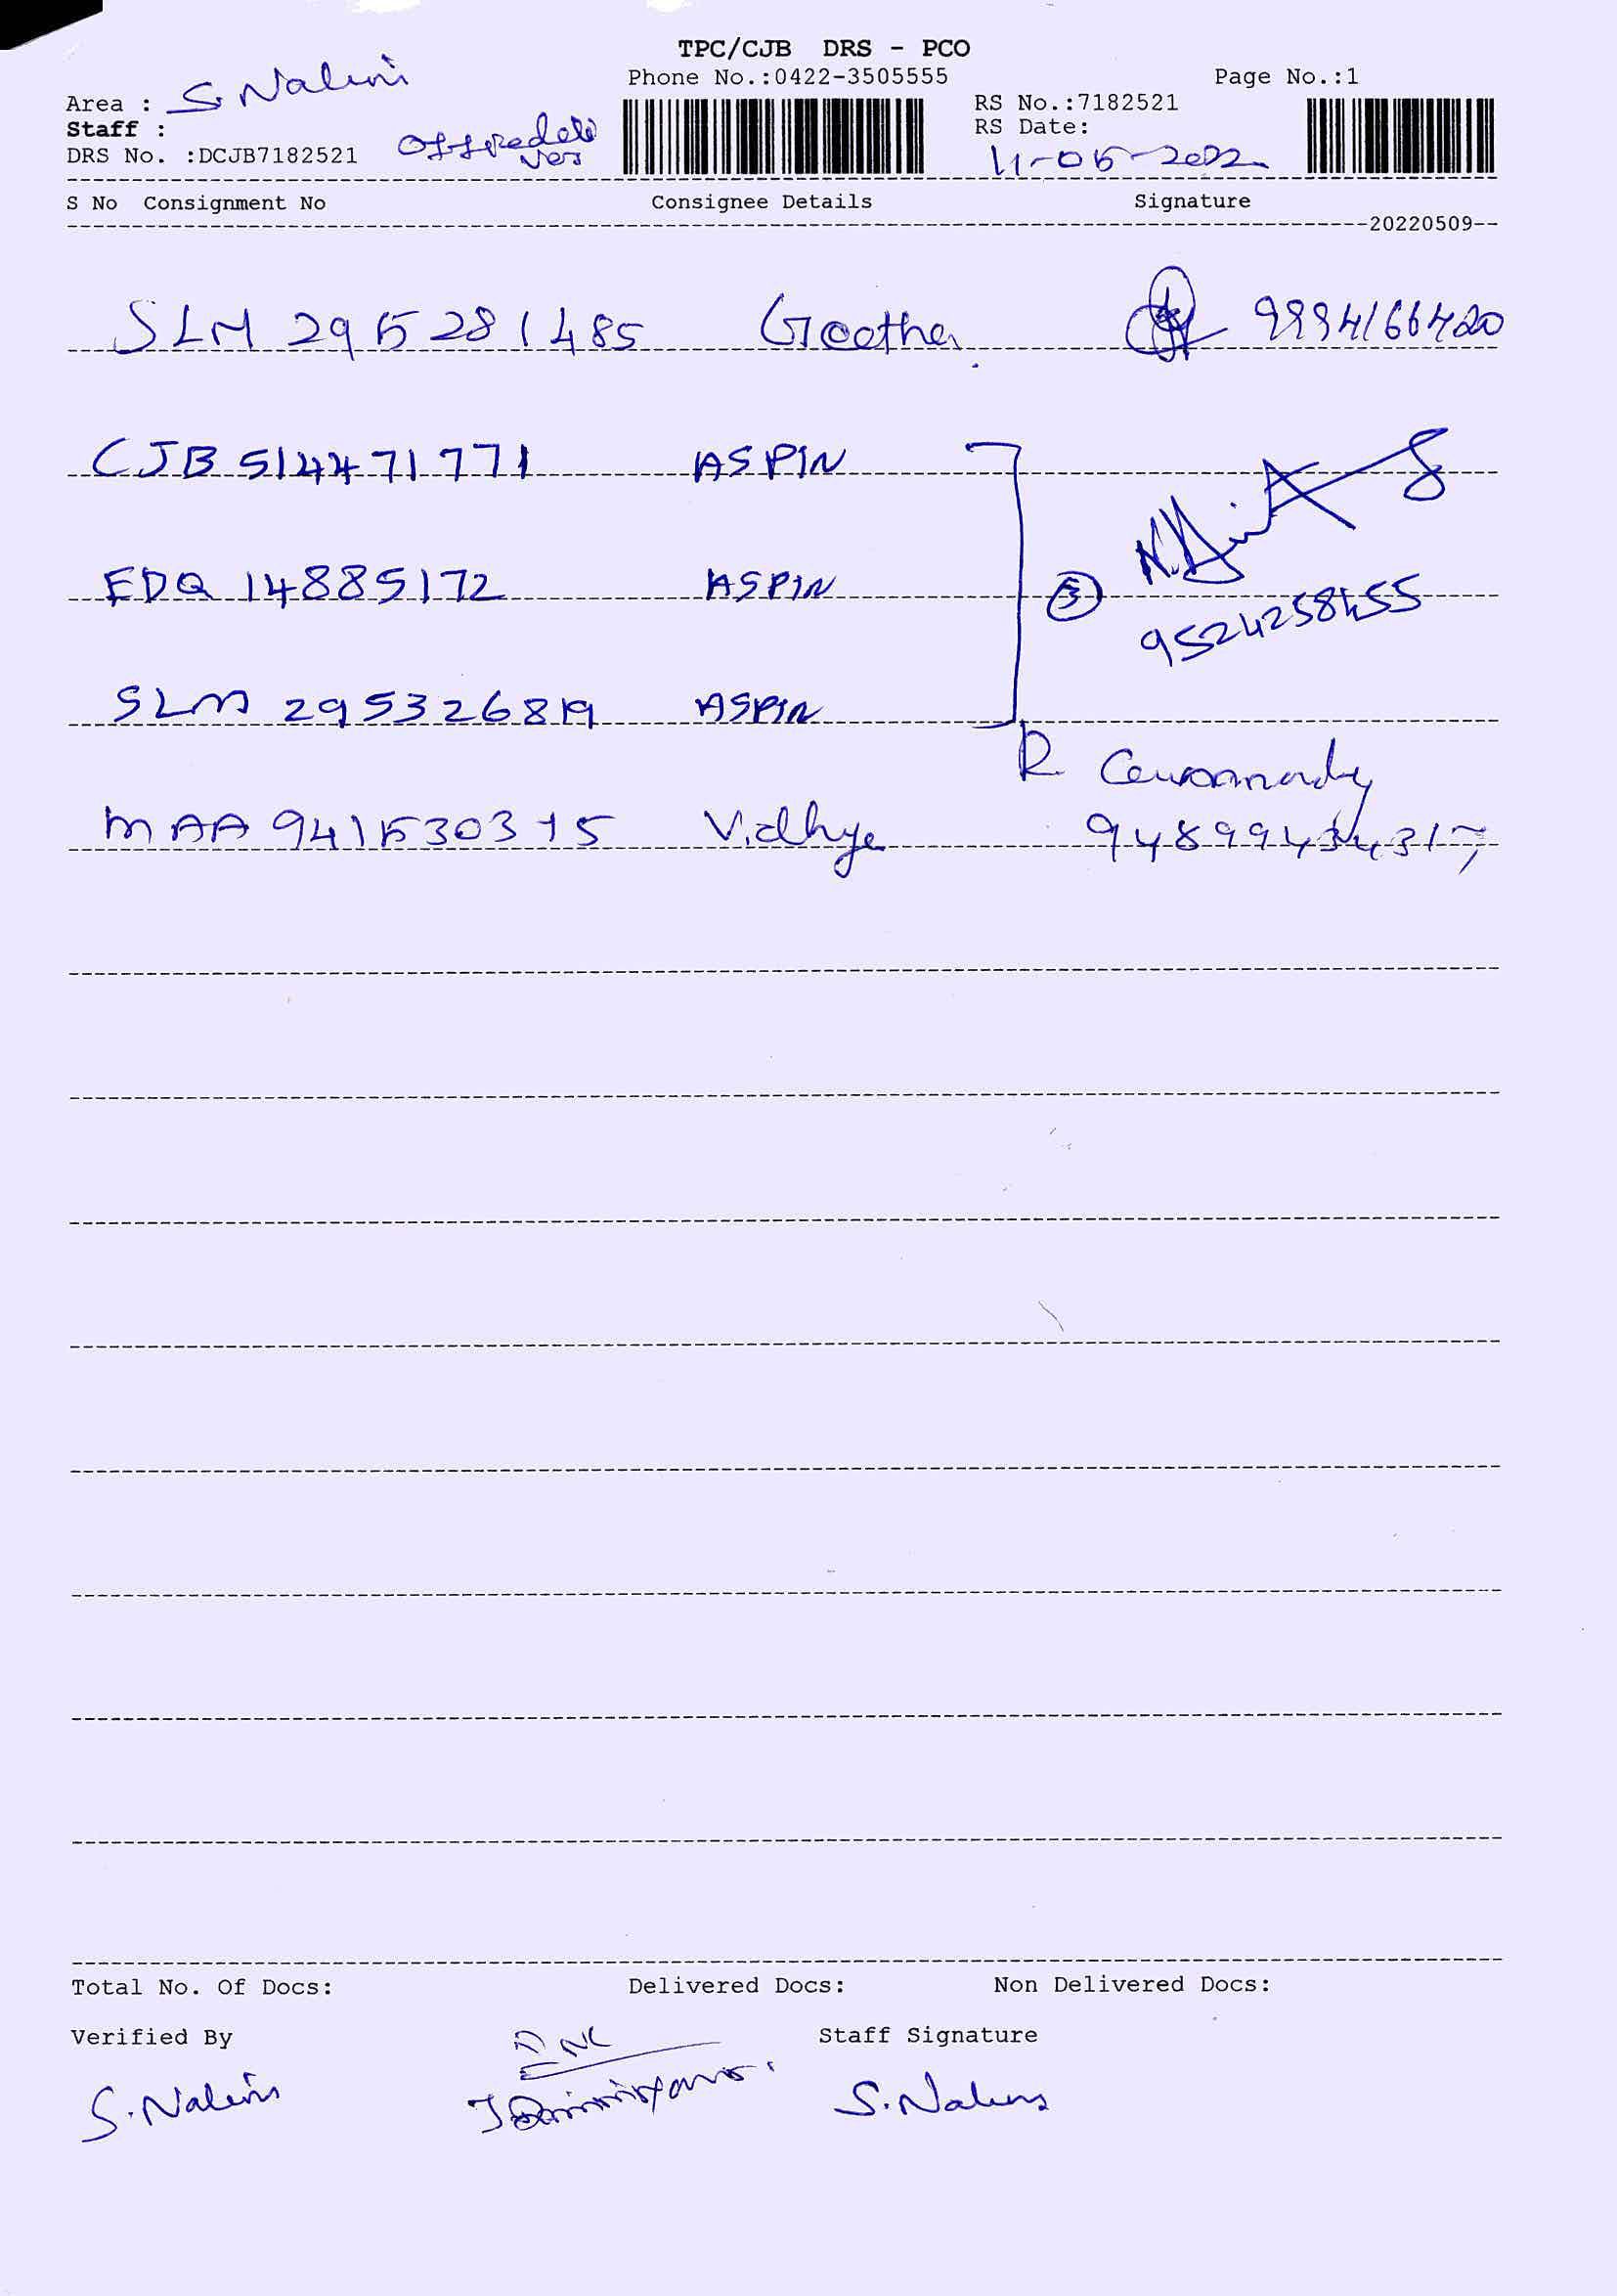 TPC/CJB DRS - PCO
Phone No.:0422-3505555 Page No.:1
Area : S. Nalini
RS No.:7182521
Staff :
RS Date: 11-05-2022
DRS No. :DCJB7182521
S No Consignment No Consignee Details Signature
20220509
SLM 295281485 Geetha 9994166420
CJB 514471771 ASPIN
EDQ 14885172 ASPIN 3
9524258455
SLM 295326819 ASPIN
R
MAA 941530315 Vidhya
Total No. Of Docs: Delivered Docs: Non Delivered Docs:
Verified By Staff Signature
S. Nalini S. Nalini